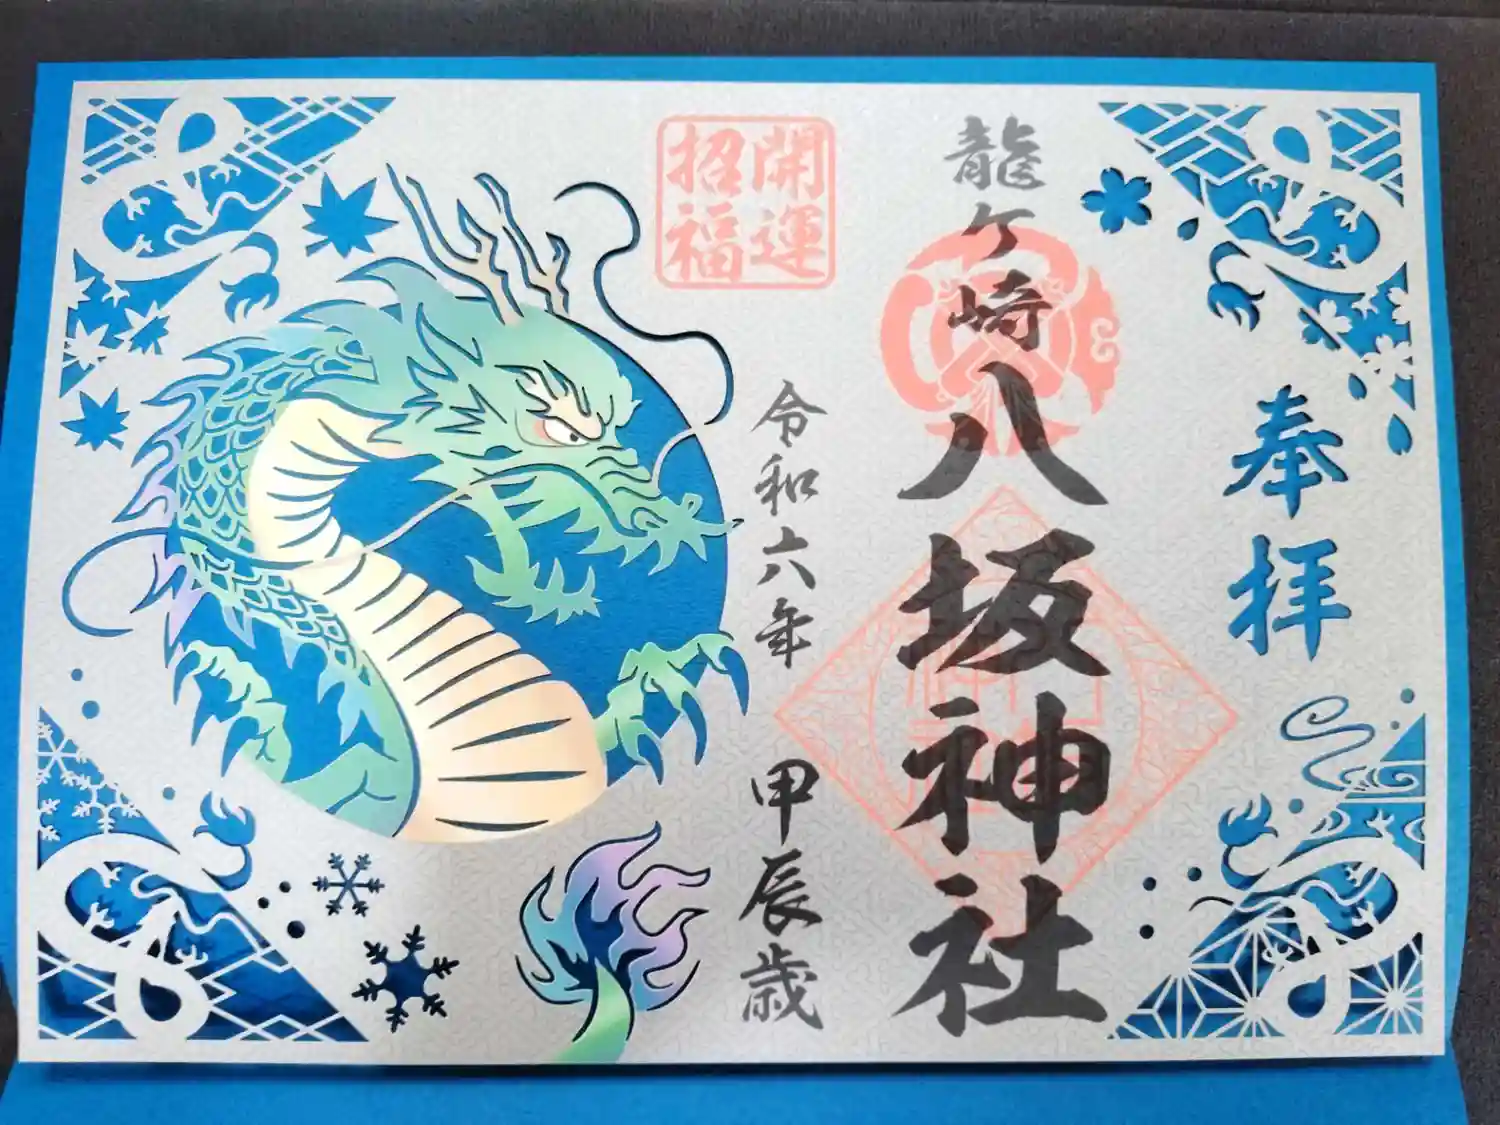 奉拝
龍ケ崎八坂神社
開運
招福
令和六年 甲辰歳